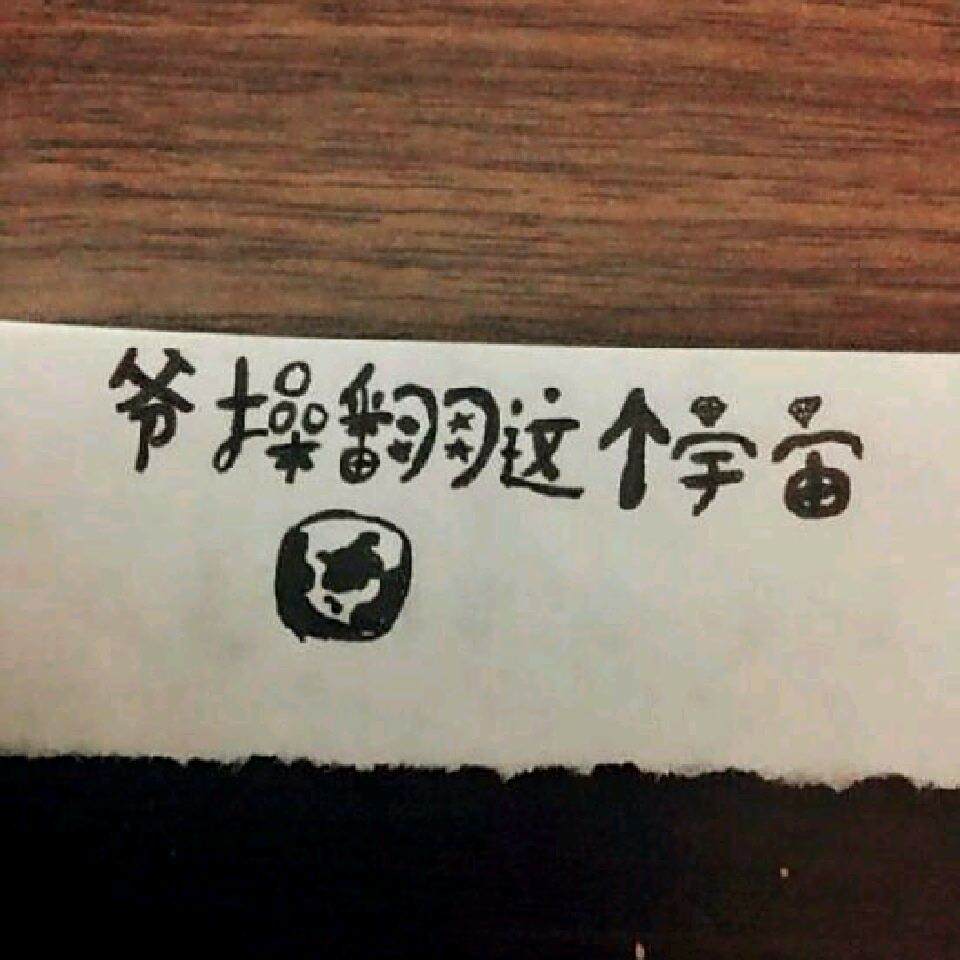 爷操翻这个宇宙